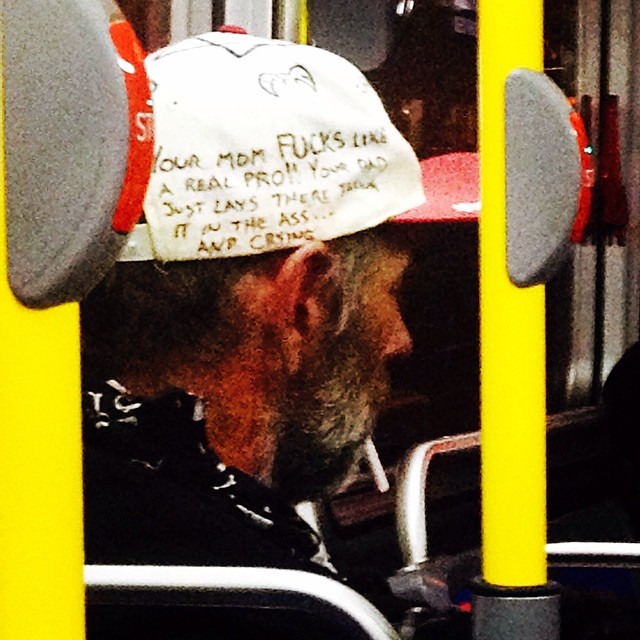 ST
YOUR MOM FUCKS LIKE
A REAL PRO!! YOUR DAD
JUST LAYS THERE
IT IN THE ASS...
AND CRYING